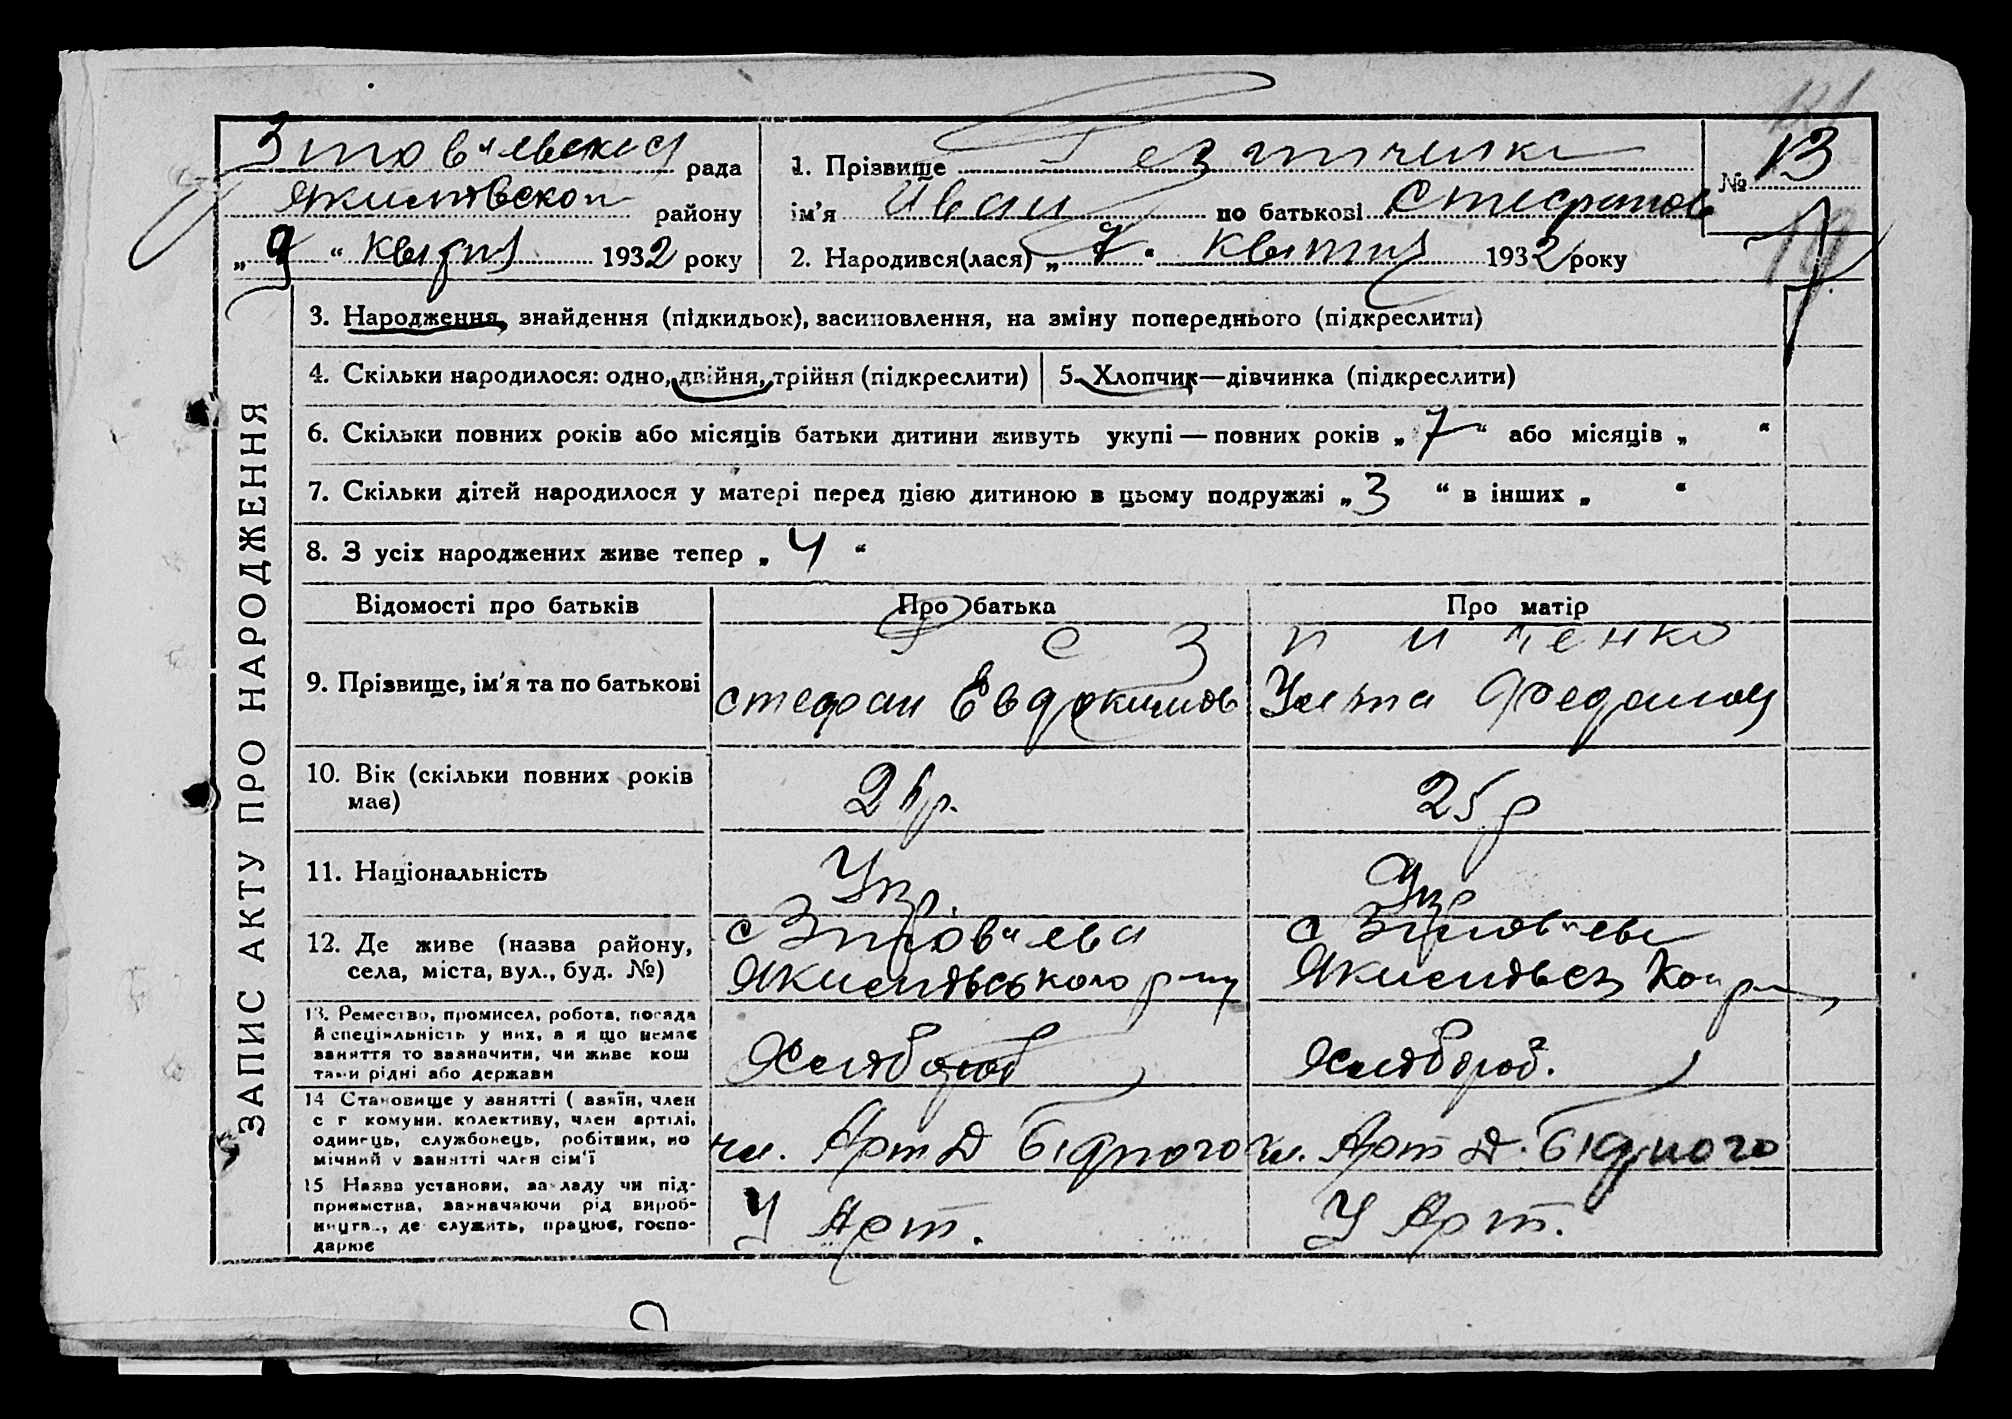 рада
району
„9“ Квітня 1932 року
1. Прізвище
ім'я Иван по батькові Стефанов
2. Народився(лася) „7“ Квітня 1932 року
№ 13
ЗАПИС АКТУ ПРО НАРОДЖЕННЯ
3. Народження, знайдення (підкидьок), засиновлення, на зміну попереднього (підкреслити)
4. Скільки народилося: одно, двійня, трійня (підкреслити)
5. Хлопчик—дівчинка (підкреслити)
6. Скільки повних років або місяців батьки дитини живуть укупі — повних років „7“ або місяців „ “
7. Скільки дітей народилося у матері перед цією дитиною в цьому подружжі „3“ в інших „ “
8. З усіх народжених живе тепер „4“
Відомості про батьків Про батька Про матір
9. Прізвище, ім'я та по батькові
Стефан Евдокимов
10. Вік (скільки повних років
має)
25 р
11. Національність
Укр. Укр
12. Де живе (назва району,
села, міста, вул., буд. №)
13. Ремество, промисел, робота, посада
й спеціяльність у них, а я що немає
заняття то зазначити, чи живе кош
тами рідні або держави
Хлібороб Хлібороб.
14 Становище у занятті ( азяїн, член
с г комуни, колективу, член артілі,
одинець, службовець, робітник, по
мічний у занятті член сім'ї
чл. Арт Д Бідного чл. Арт Д. Бідного
15 Назва установи, закладу чи під-
приємства, зазначаючи рід вироб-
ництв., де служить, працює, госпо-
дарює
У Арт. У Арт.